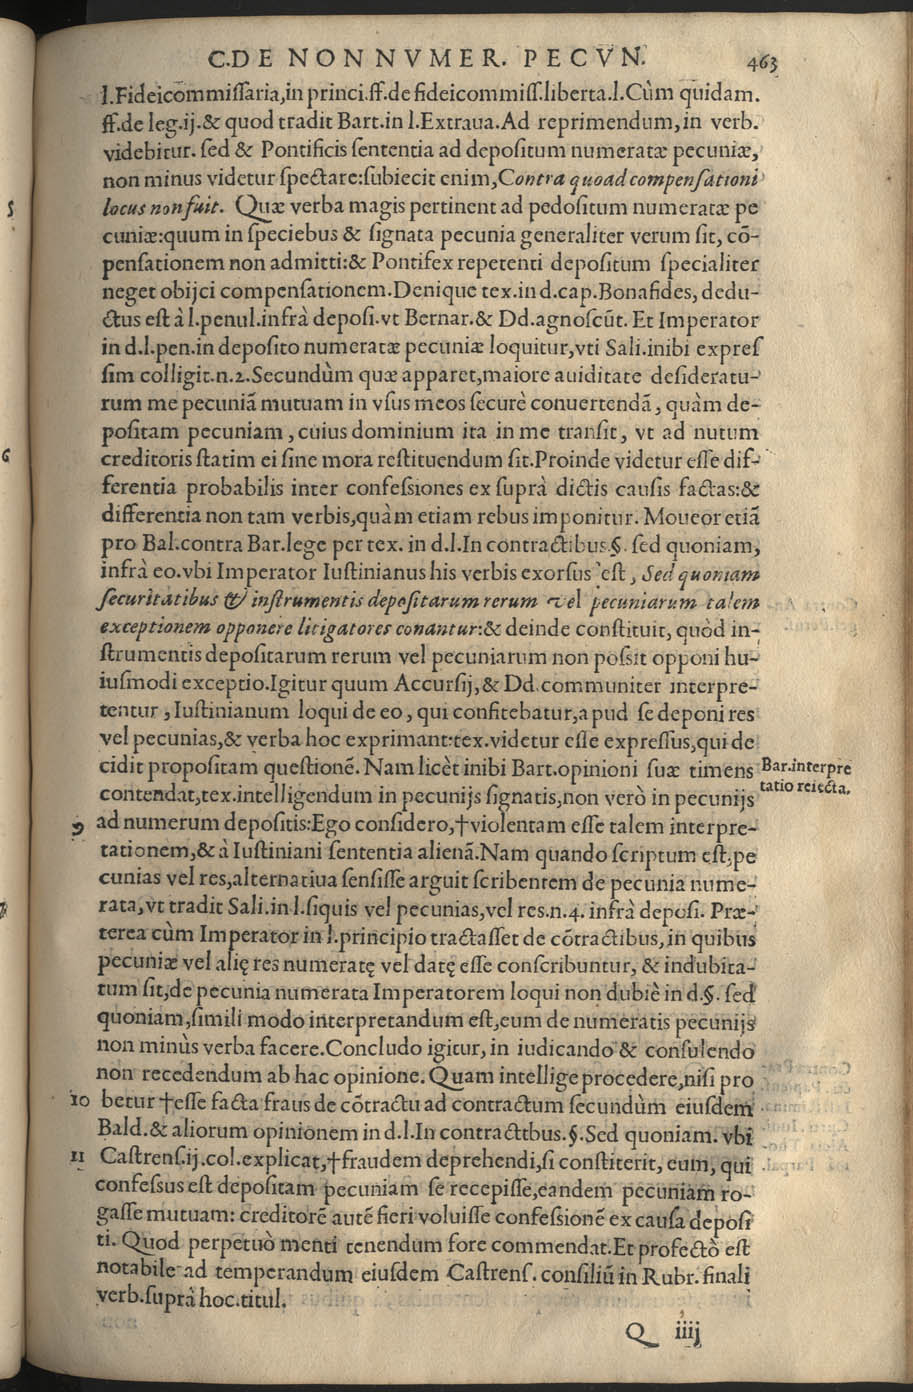 C.DE NON NVMER. PECVN. 463
l.Fideicōmmiſſaria,in princi.ff.de fideicommiſſ.liberta.l.Cùm quidam.
ff.de leg.ij.& quod tradit Bart.in l.Extraua.Ad reprimendum,in verb.
videbitur. ſed & Pontificis ſententia ad depoſitum numeratæ pecuniæ,
non minus videtur ſpectare:ſubiecit enim,Contra quoad compenſationi
locus non fuit. Quæ verba magis pertinent ad pedoſitum numeratæ pe
cuniæ:quum in ſpeciebus & ſignata pecunia generaliter verum ſit, cō-
penſationem non admitti:& Pontifex repetenti depoſitum ſpecialiter
neget obijci compenſationem.Denique tex.in d.cap.Bonafides, dedu-
ctus eſt à l.penul.infrà depoſi.vt Bernar.& Dd.agnoſcūt. Et Imperator
in d.l.pen.in depoſito numeratæ pecuniæ loquitur,vti Sali.inibi expreſ
ſim colligit.n.2.Secundùm quæ apparet,maiore auiditate deſideratu-
rum me pecuniā mutuam in vſus meos ſecurè conuertendā, quàm de-
poſitam pecuniam, cuius dominium ita in me tranſit, vt ad nutum
creditoris ſtatim ei ſine mora reſtituendum ſit.Proinde videtur eſſe dif-
ferentia probabilis inter confeſsiones ex ſuprà dictis cauſis factas:&
differentia non tam verbis,quàm etiam rebus imponitur. Moueor etiā
pro Bal.contra Bar.lege per tex. in d.l.In contractibus.§. ſed quoniam,
infrà eo.vbi Imperator Iuſtinianus his verbis exorſus eſt, Sed quoniam
ſecuritatibus & inſtrumentis depoſitarum rerum vel pecuniarum talem
exceptionem opponere litigatores conantur:& deinde conſtituit, quòd in-
ſtrumentis depoſitarum rerum vel pecuniarum non poſsit opponi hu-
iuſmodi exceptio.Igitur quum Accurſij,& Dd.communiter interpre-
tentur, Iuſtinianum loqui de eo, qui confitebatur,apud ſe deponi res
vel pecunias,& verba hoc exprimant:tex.videtur eſſe expreſſus,qui de
cidit propoſitam queſtionē. Nam licèt inibi Bart.opinioni ſuæ timens
Bar.interpre
tatio reiecta.
contendat,tex.intelligendum in pecunijs ſignatis,non verò in pecunijs
9 ad numerum depoſitis:Ego conſidero,†violentam eſſe talem interpre-
tationem,& à Iuſtiniani ſententia alienā.Nam quando ſcriptum eſt,pe
cunias vel res,alternatiua ſenſiſſe arguit ſcribentem de pecunia nume-
rata,vt tradit Sali.in l.ſiquis vel pecunias,vel res.n.4. infrà depoſi. Præ-
terea cùm Imperator in l.principio tractaſſet de cōtractibus,in quibus
pecuniæ vel alię res numeratę vel datę eſſe conſcribuntur, & indubita-
tum ſit,de pecunia numerata Imperatorem loqui non dubiè in d.§. ſed
quoniam,ſimili modo interpretandum eſt,eum de numeratis pecunijs
non minùs verba facere.Concludo igitur, in iudicando & conſulendo
non recedendum ab hac opinione. Quam intellige procedere,niſi pro
10 betur †eſſe facta fraus de cōtractu ad contractum ſecundùm eiuſdem
Bald.& aliorum opinionem in d.l.In contractibus.§.Sed quoniam. vbi
11 Caſtrenſ.ij.col.explicat,†fraudem deprehendi,ſi conſtiterit, eum, qui
confeſsus eſt depoſitam pecuniam ſe recepiſſe,eandem pecuniam ro-
gaſſe mutuam: creditorē autē fieri voluiſſe confeſsionē ex cauſa depoſi
ti. Quod perpetuò menti tenendum fore commendat.Et profectò eſt
notabile ad temperandum eiuſdem Caſtrenſ. conſiliū in Rubr. finali
verb.ſuprà hoc.titul.
Q iiij
5
6